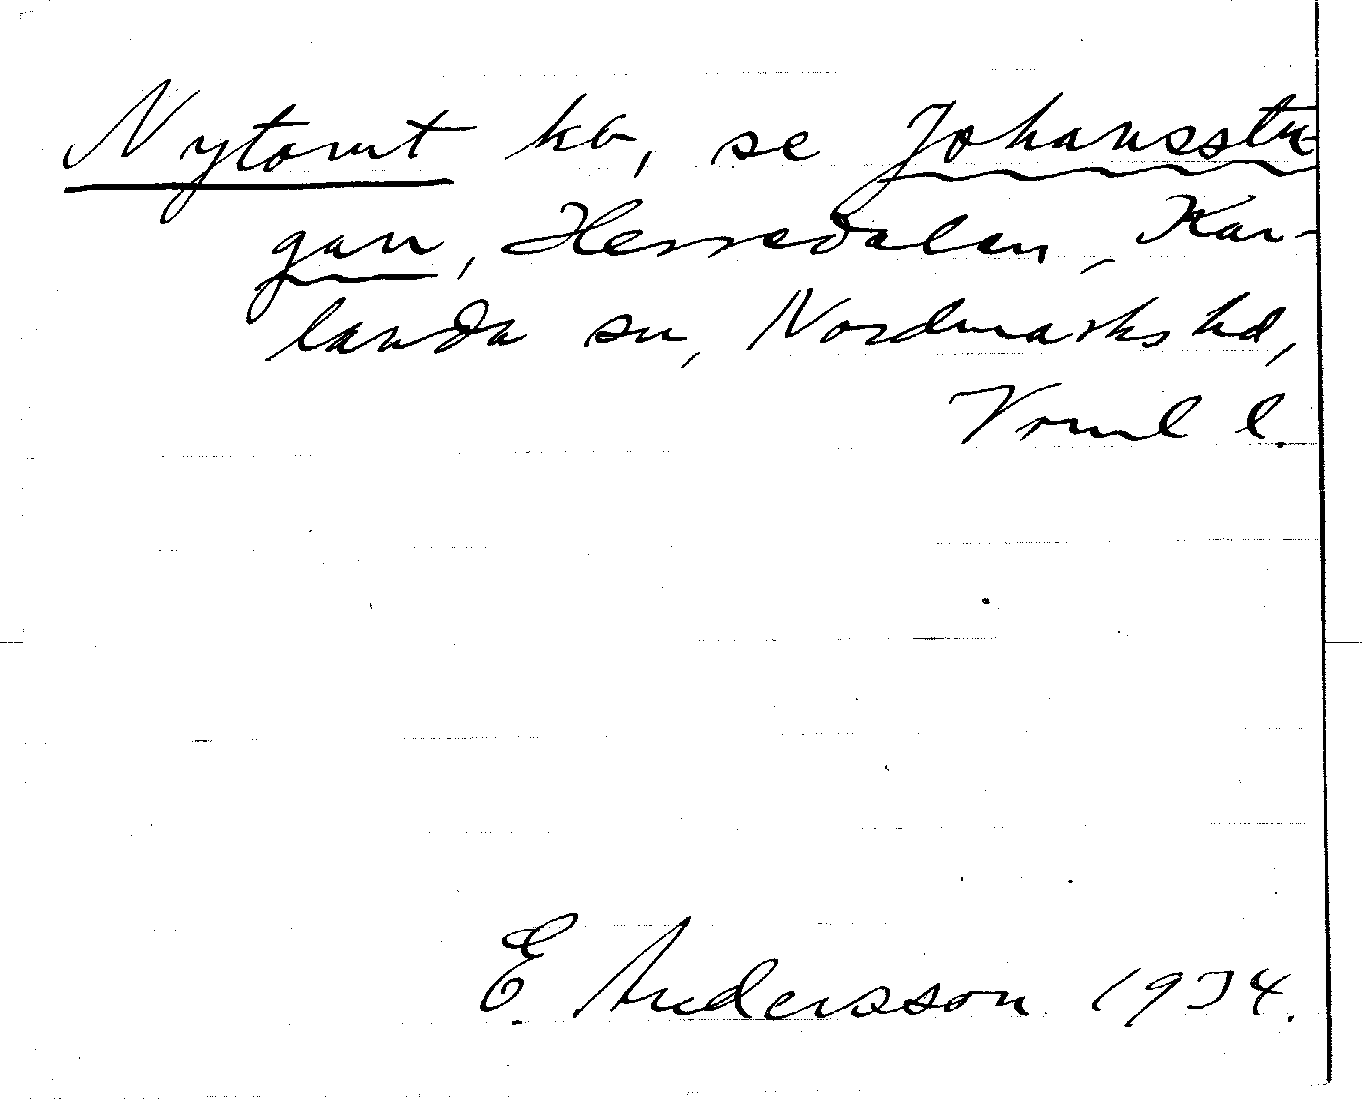 Nytomt kb, se Johansstu-
gan, Herredalen, Kar-
landa sn, Nordmarks hd,
Vrml l.
E. Andersson 1934.